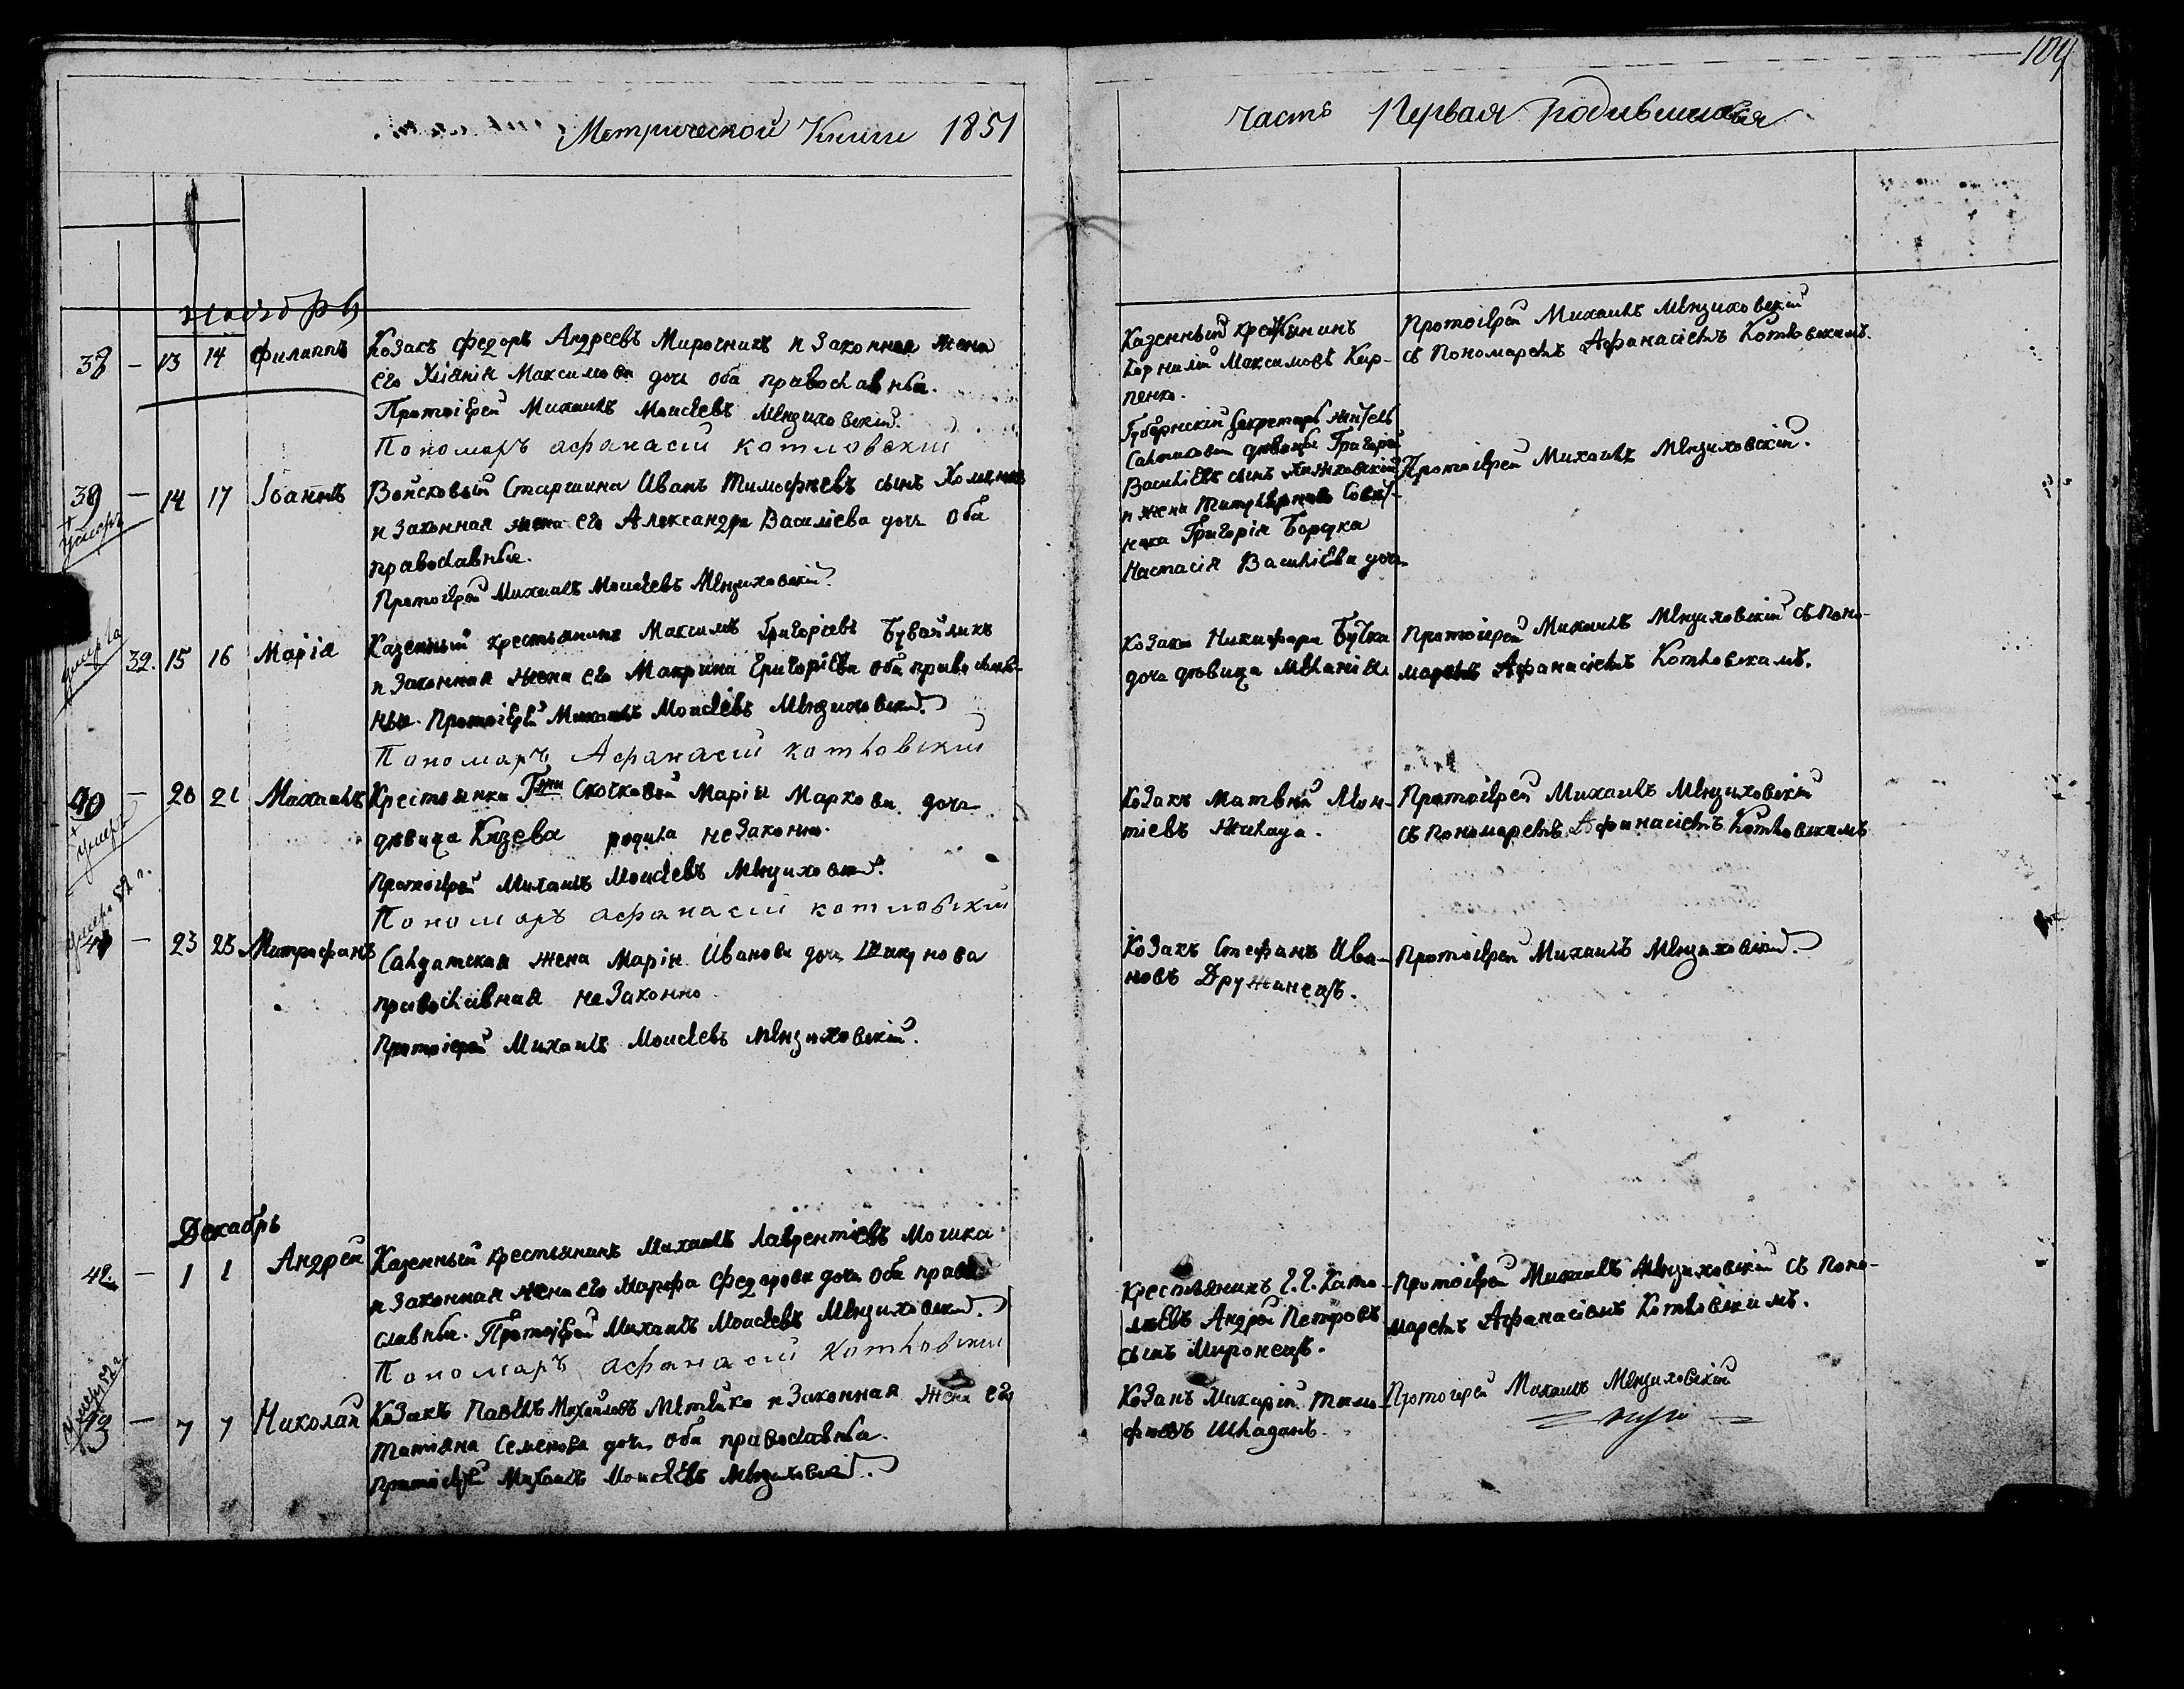 104
Метрической Книги 1851
Часть Первая родившихся
ноябрь
38 – 13 14 Филиппъ
Козакъ Федоръ Андреевъ Мирочникъ и Законная жена
его Максимова дочь оба православные.
Протоіерей Михаилъ Моисеевъ Мензиховскій.
Пономаръ афанасіи котловскіи
Казенный
Корнилій Максимовъ Кир-
пенко.
Протоіерей Михаилъ Мензиховскій
съ Пономаремъ Афанасіемъ Котловскимъ.
39 – 14 17 Іоаннъ
умеръ
Войсковый Старшина Иванъ Тимофеевъ сынъ
и Законная жена его Александра Василіева дочь Оба
православные.
Протоіерей Михаилъ Моисеевъ Мензиховскій.
Губернскій Секретарь
Григорій
Василіевъ сынъ
и жена Титулярнаго Совет-
ника Григорія
Настасія Василіева дочь
Протоіерей Михаилъ Мензиховскій.
умерла
32. 15 16 Марія
Казенный крестьянинъ Максимъ Григоріевъ Бувайликъ
и Законная жена его Макрина Григоріева оба православ-
ные. Протоіерей Михаилъ Моисеевъ Мензиховскій.
Пономаръ Афанасіи котловскіи
Козака Никифора Бутка
дочь девица Меланія
Протоіерей Михаилъ Мензиховскій съ Поно-
маремъ Афанасіемъ Котловскимъ.
40 – 20 21 Михаилъ
умеръ
Крестьянка Гжи Скочковой Марія Маркова дочь
девица Кизева родила незаконно.
Протоіерей Михаилъ Моисеевъ Мензиховскій.
Пономаръ афанасіи котловскіи
Козакъ Матвей Леон-
тіевъ Жилада.
Протоіерей Михаилъ Мензиховскій
съ Пономаремъ Афанасіемъ Котловскимъ
умеръ 52 г.
41 – 23 25 Митрофанъ
Салдатская жена Марія Иванова дочь Шакунова
православная незаконно.
Протоіерей Михаилъ Моисеевъ Мензиховскій.
Козакъ Стефанъ Ива-
новъ Дружинецъ.
Протоіерей Михаилъ Мензиховскій.
Декабрь
42. – 1 1 Андрей
Казенный крестьянинъ Михаилъ Лаврентіевъ Мочика
и Законная жена его Марфа Федорова дочь Оба право
славные. Протоіерей Михаилъ Моисеевъ Мензиховскій.
Пономаръ афанасіи Котловскіи
Крестьянинъ
Андрей Петровъ
сынъ Миронецъ.
Протоіерей Михаилъ Мензиховскій съ Поно-
маремъ Афанасіемъ Котловскимъ.
умеръ 52 г.
43 – 7 7 Николай
Козакъ Павелъ Михайловъ Метейко и Законная жена его
Татіяна Семенова дочь Оба православные.
Протоіерей Михаилъ Моисеевъ Мензиховскій.
Козакъ Макарій Тимо-
феевъ Шкаданъ.
Протоіерей Михаилъ Мензиховскій